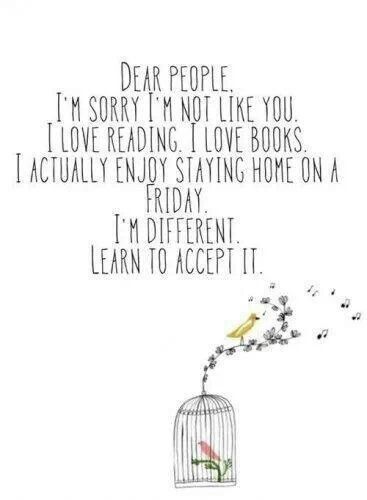 DEAR PEOPLE,
I'M SORRY I'M NOT LIKE YOU.
I LOVE READING. I LOVE BOOKS.
I ACTUALLY ENJOY STAYING HOME ON A
FRIDAY.
I'M DIFFERENT.
LEARN TO ACCEPT IT.